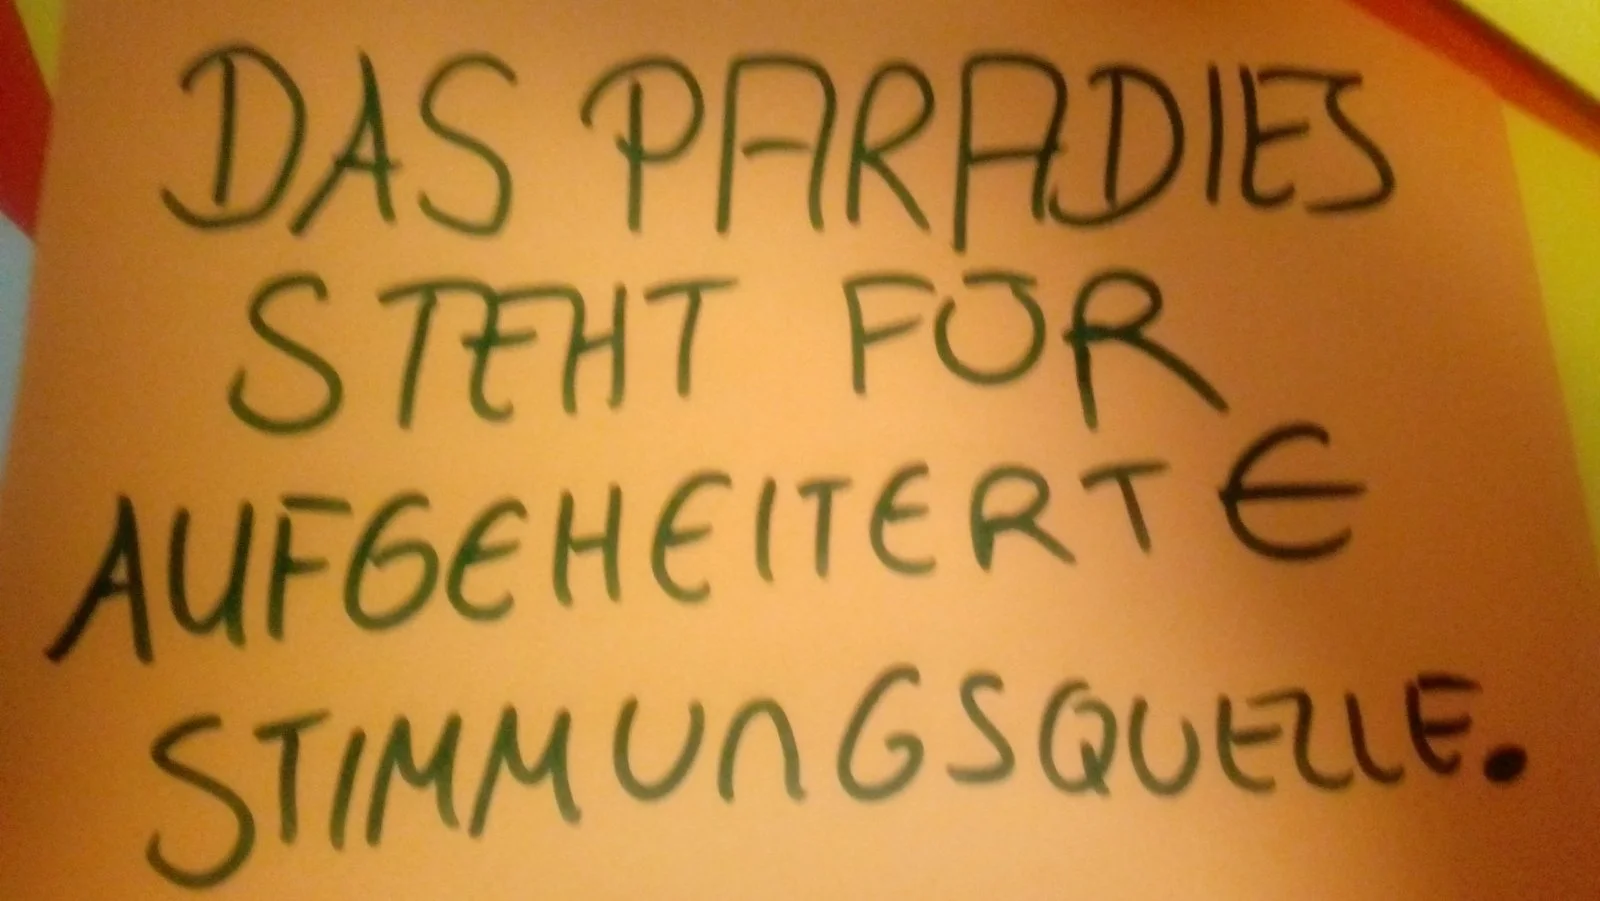 DAS PARADIES
STEHT FÜR
AUFGEHEITERTE
STIMMUNGSQUELLE.